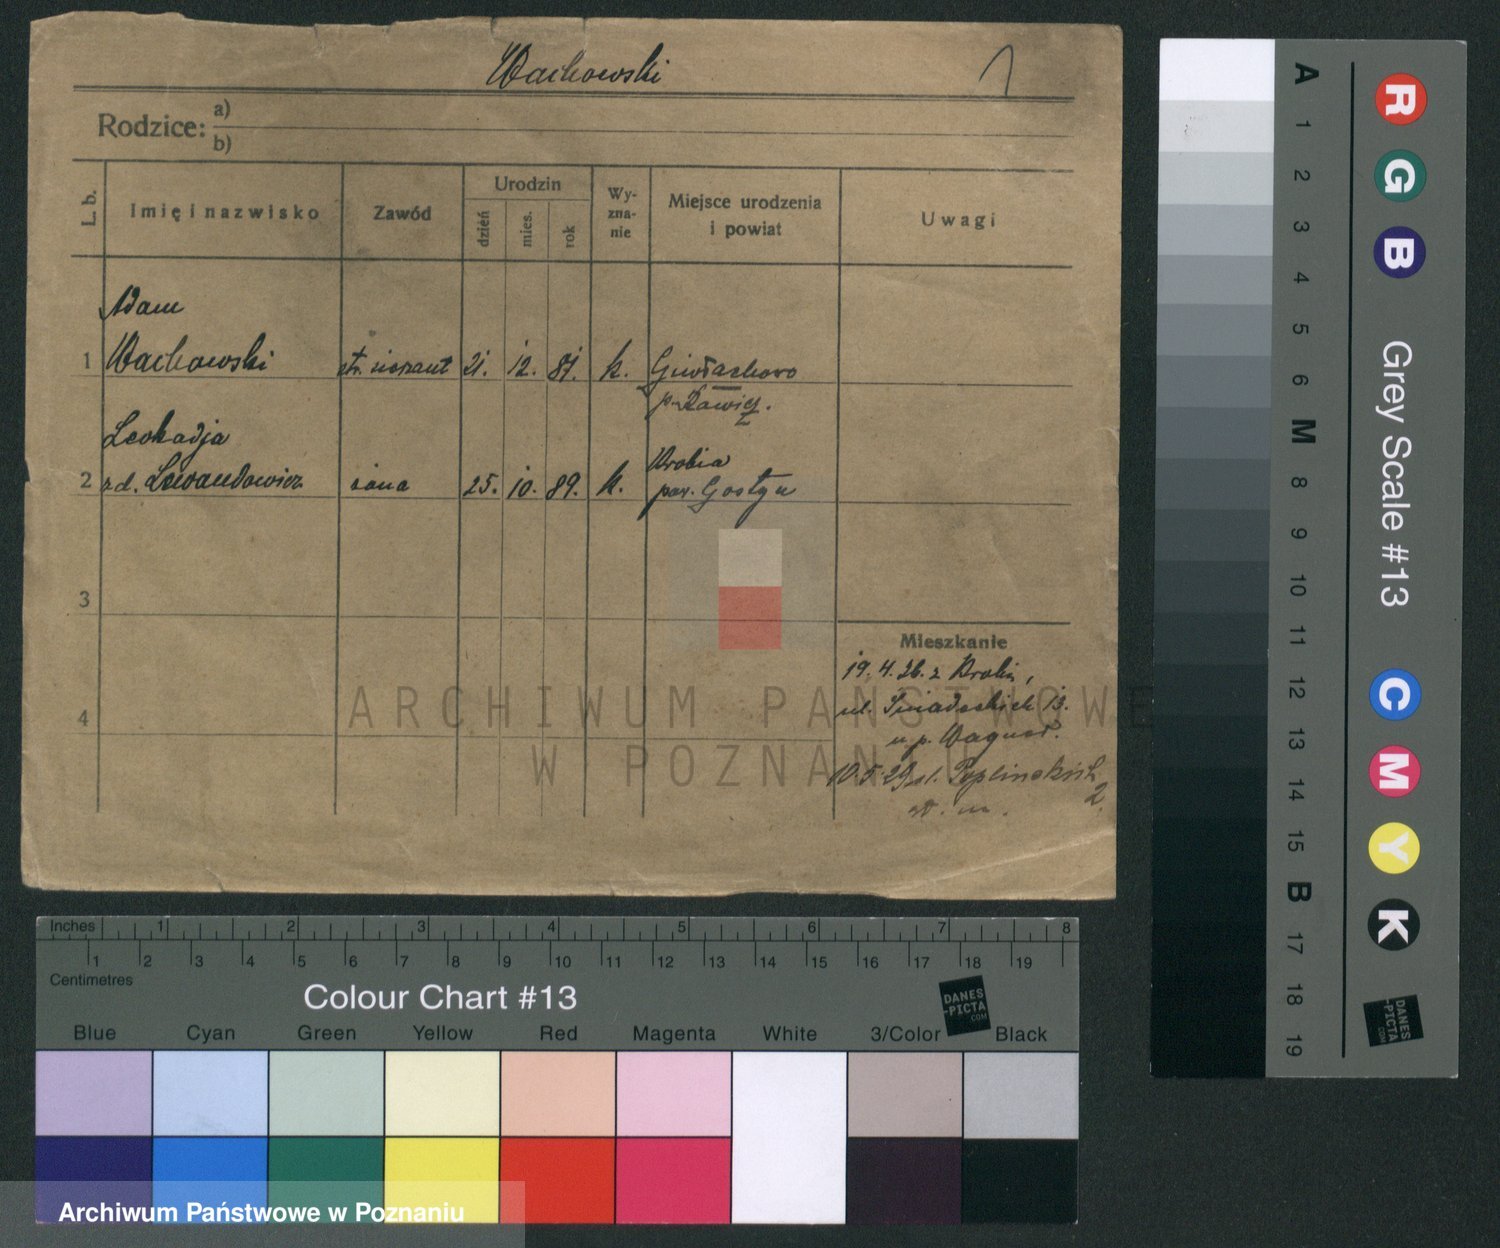 Wachowski 1
Rodzice: a)
b)
L. b. Imię i nazwisko Zawód Urodzin Wy-
zna-
nie Miejsce urodzenia
i powiat Uwagi
dzień mies. rok
Adam
1 Wachowski st. sierżant 21. 12. 87. k.
p. Rawicz.
Leokadja
2 z d. Lewandowicz żona 25. 10. 89. k. Krobia
pow. Gostyń
3
Mieszkanie
19. 4. 26. z Krobi,
ul. Śniadeckich 13.
4
u p. Wagner.
10.5.29 ul.
2.
ARCHIWUM PAŃSTWOWE
W POZNANIU
Inches 1 2 3 4 5 6 7 8
1 2 3 4 5 6 7 8 9 10 11 12 13 14 15 16 17 18 19
Centimetres
Colour Chart #13
DANES
-PICTA
.COM
Blue Cyan Green Yellow Red Magenta White 3/Color Black
Archiwum Państwowe w Poznaniu
A 1 2 3 4 5 6 M 8 9 10 11 12 13 14 15 B 17 18 19
R G B Grey Scale #13 C M Y K
DANES
-PICTA
.COM